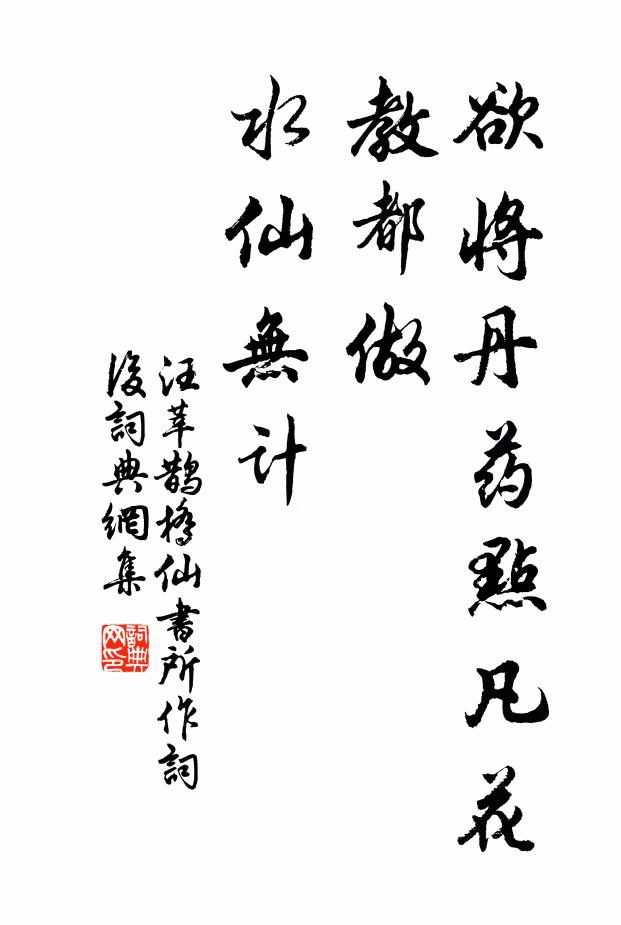 欲将丹药點凡花
教都做
水仙無计
汪莘鹊橋仙書所作詞
後詞典網集
詞典
网印